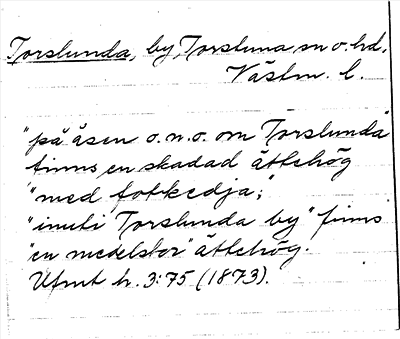 Torslunda, by, Torstuna sn o. hd,
Västm. l.
"på åsen o.n.o. om Torslunda"
finns en skadad ättehög
"med fotkedja;"
"inuti Torslunda by" finns
"en medelstor" ättehög.
Ufmt h. 3:75 (1873).